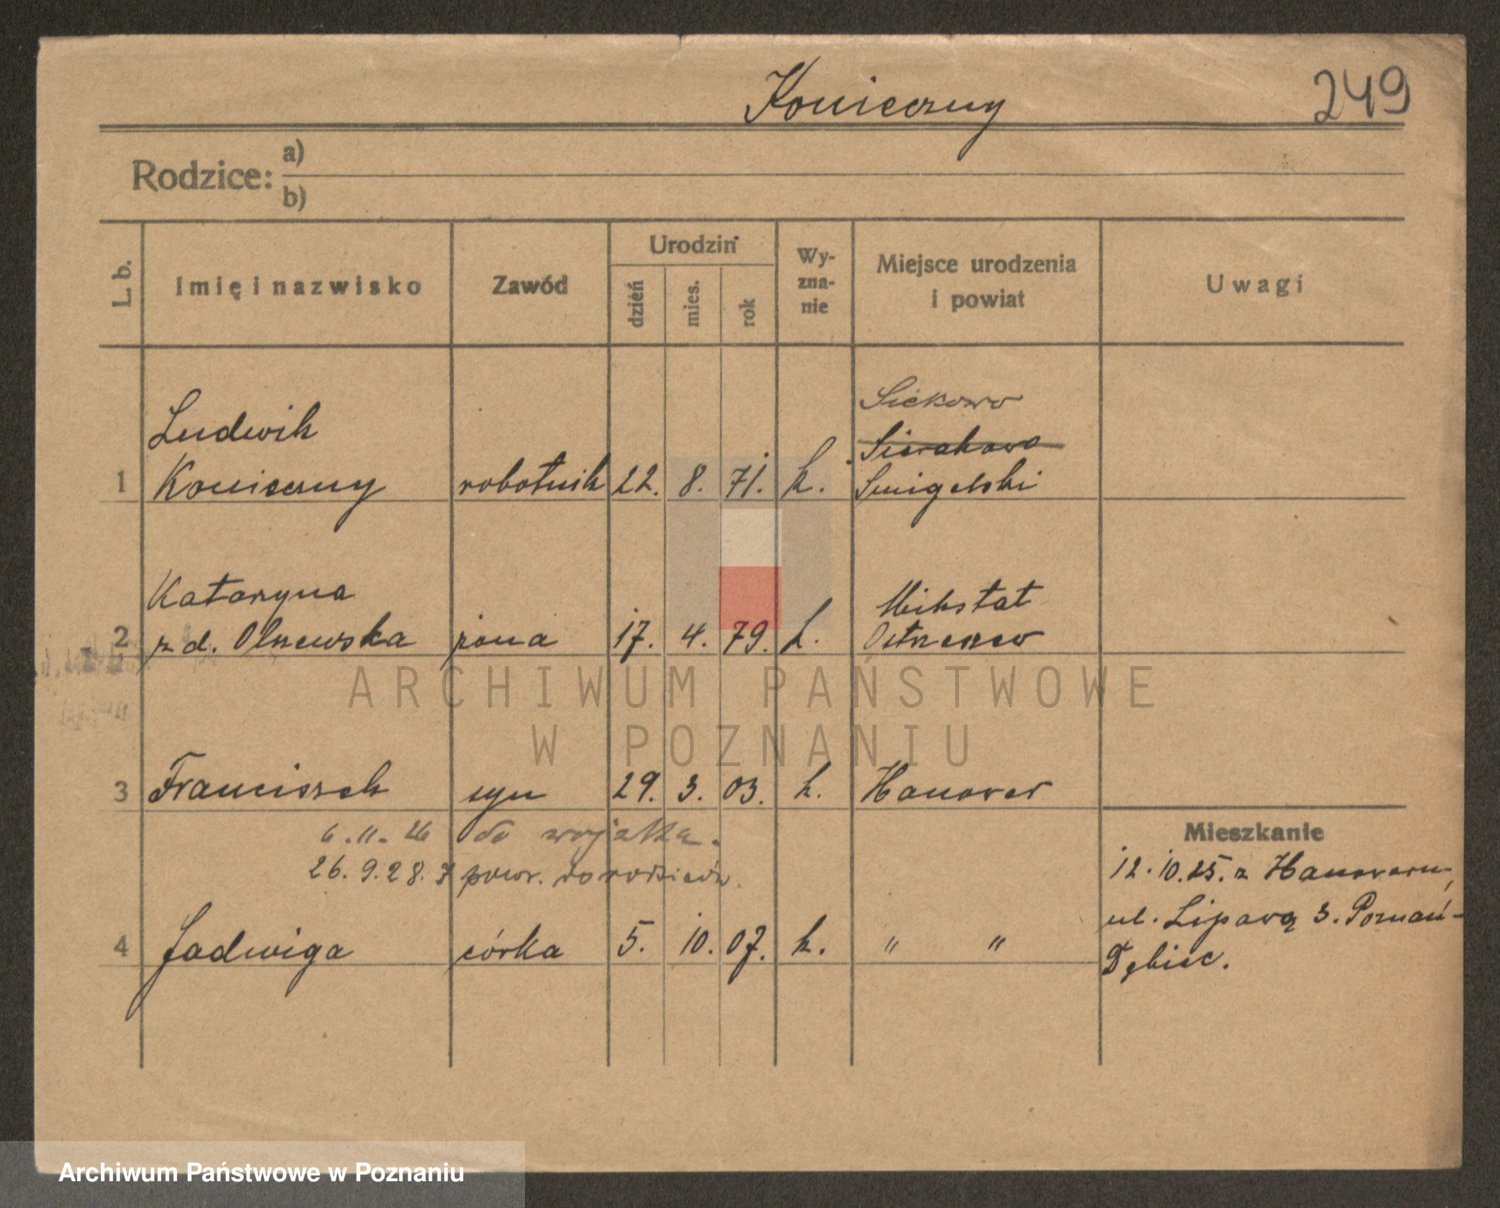 Konieczny
249
Rodzice: a)
b)
L. b.
Imię i nazwisko
Zawód
Urodzin
dzień
mies.
rok
Wy-
zna-
nie
Miejsce urodzenia
i powiat
Uwagi
Siekowo
Ludwik
Sierakowo
1 Konieczny robotnik 22. 8. 71. k. Śmigelski
Kataryna Mikstat
2 z d. Olszewska żona 17. 4. 79. k. Ostrzeszew
ARCHIWUM PAŃSTWOWE
W POZNANIU
3 Franciszek syn 29. 3. 03. k. Hanower
6.11.26 do wojska.
26.9.28. powr. do rodziców.
4 Jadwiga córka 5. 10. 07. k. " "
Mieszkanie
12.10.25. z Hanoweru,
ul. Lipową 3. Poznań-
Dębiec.
Archiwum Państwowe w Poznaniu